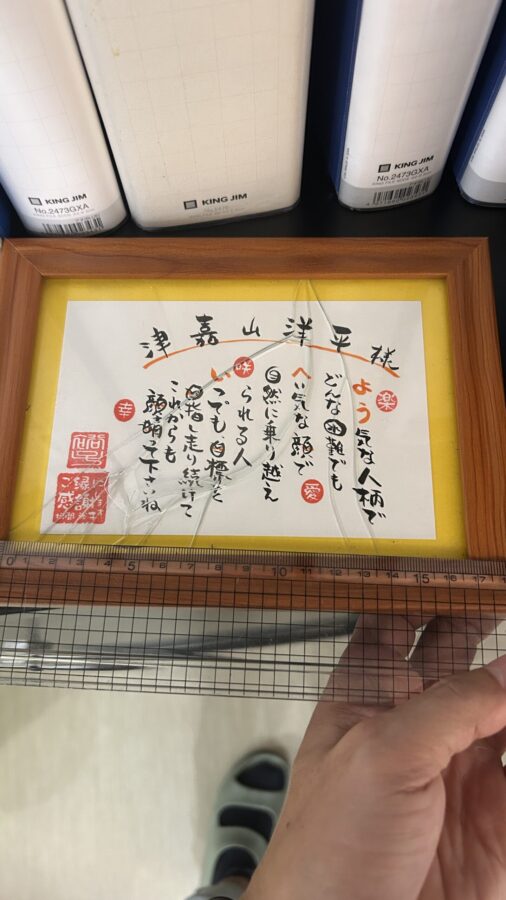 KING JIM
No.2473GXA
KING JIM
KING JIM
No.2473GXA
津嘉山洋平様
よう気な人柄で
どんな困難でも
へい気な顔で
自然に乗り越え
られる人
いつでも目標を
目指し走り続けて
これからも
頑張って下さいね
楽
愛
咲
幸
ご縁
感謝
0 1 2 3 4 5 6 7 8 9 10 11 12 13 14 15 16 17